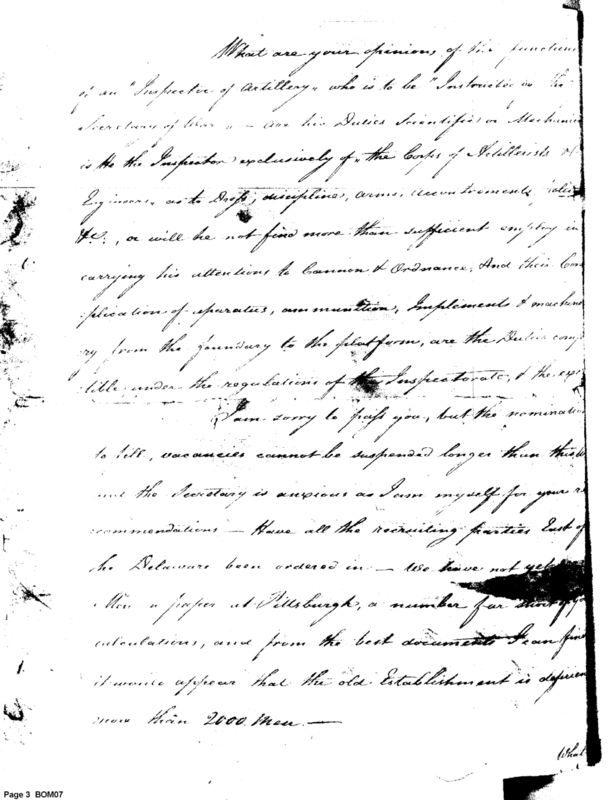 What are your opinions of the functions
of an "Inspector of Artillery" who is to be "Instructed by the
Secretary of War" — are his Duties Scientific or Mechanic
is he the Inspector exclusively of the Corps of Artillerists &
Engineers, as to Dress, discipline, arms, accoutrements,
&c:, or will he not find more than sufficient employ in
carrying his attentions to Cannon & Ordnance, And their Com
plication of aparatus, ammunition, Implements & machine
ry from the foundary to the platform, are the Duties comp
tible under the regulations of the Inspectorate, & the
I am sorry to press you, but the nominations
to fill, vacancies cannot be suspended longer than this,
and the Secretary is anxious as I am myself for your re
commendations — Have all the recruiting parties East of
the Delaware been ordered in — We have not yet
Men a paper at Pittsburgh, a number far short of
calculations, and from the best documents I can find
it would appear that the old Establishment is
more than 2000 Men. —
What
Page 3 BOM07